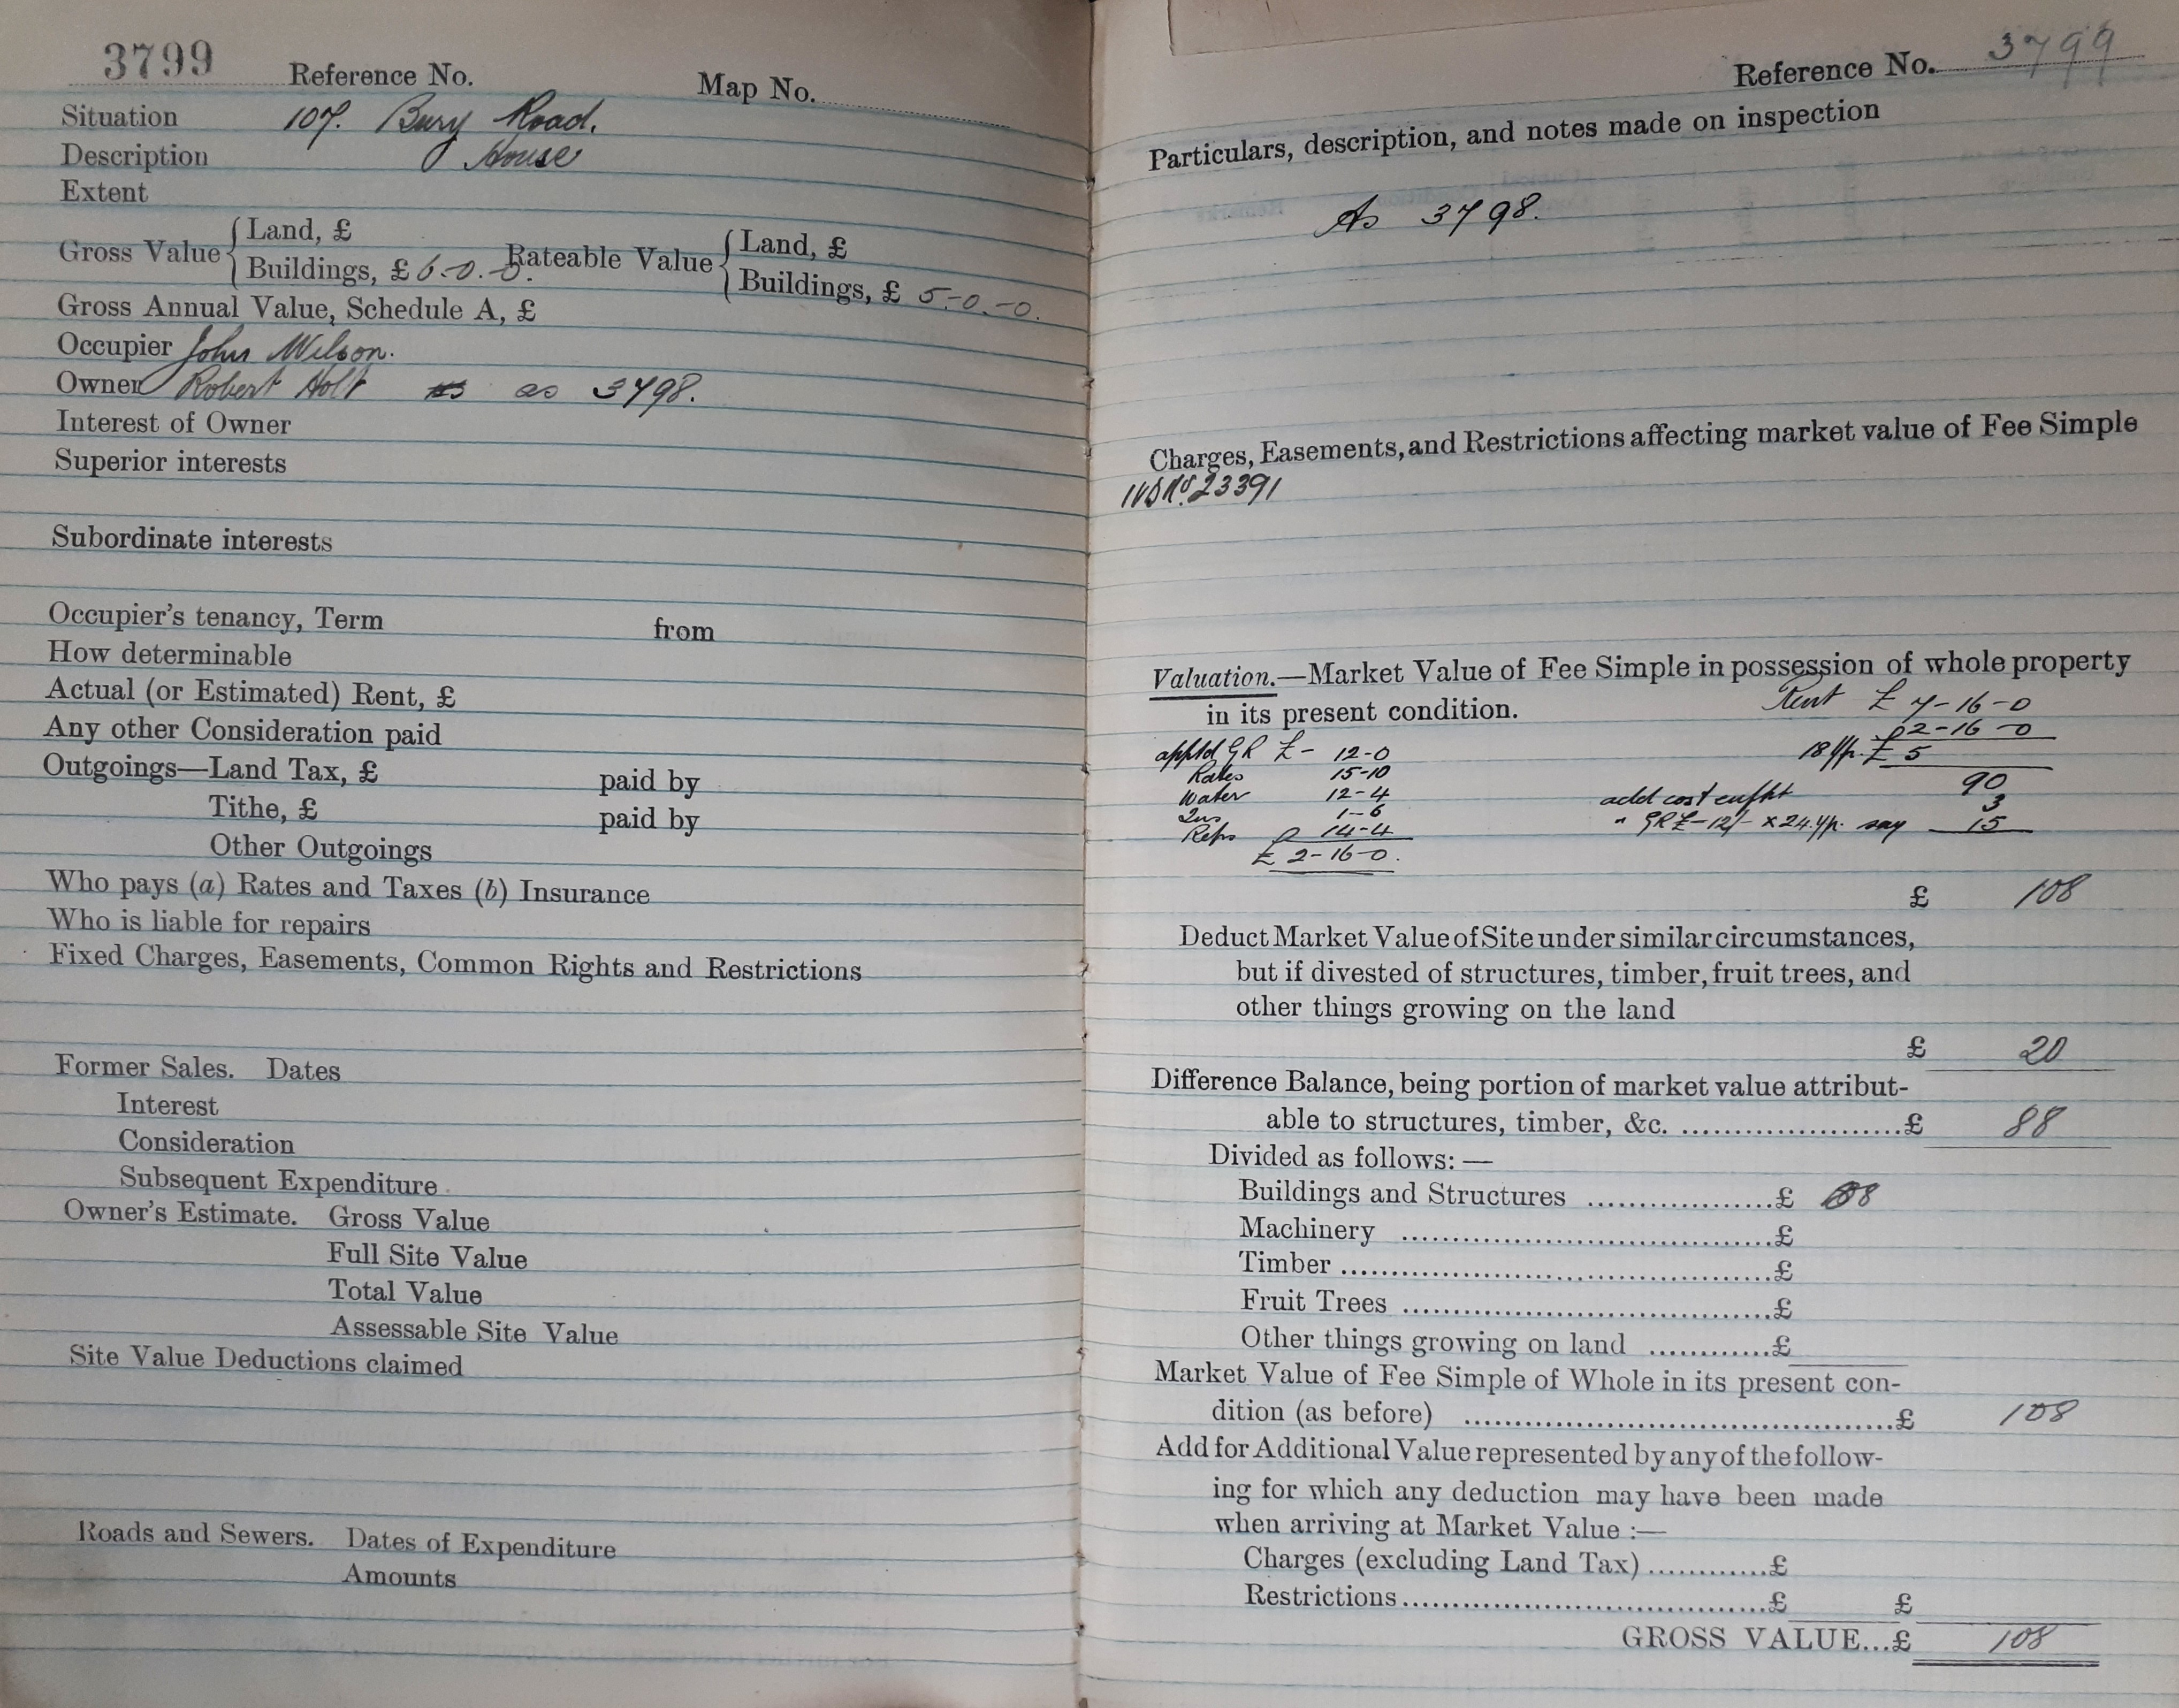 3799 Reference No. Map No.
Situation 107. Bury Road.
Description House
Extent
Gross Value { Land, £ Rateable Value { Land, £
Buildings, £ 6-0-0. Buildings, £ 5-0-0.
Gross Annual Value, Schedule A, £
Occupier John Wilson.
Owner Robert Holt as 3798.
Interest of Owner
Superior interests
Subordinate interests
Occupier's tenancy, Term from
How determinable
Actual (or Estimated) Rent, £
Any other Consideration paid
Outgoings—Land Tax, £ paid by
Tithe, £ paid by
Other Outgoings
Who pays (a) Rates and Taxes (b) Insurance
Who is liable for repairs
Fixed Charges, Easements, Common Rights and Restrictions
Former Sales. Dates
Interest
Consideration
Subsequent Expenditure
Owner's Estimate. Gross Value
Full Site Value
Total Value
Assessable Site Value
Site Value Deductions claimed
Roads and Sewers. Dates of Expenditure
Amounts
Reference No. 3799
Particulars, description, and notes made on inspection
As 3798.
Charges, Easements, and Restrictions affecting market value of Fee Simple
23391
Valuation.—Market Value of Fee Simple in possession of whole property
in its present condition.
Rent £ 7-16-0
2-16-0
apptd GR £- 12-0
18 yp. £ 5
Rates 15-10
90
Water 12-4
add cost enfht 3
Ins 1-6
" GR £-12/- x 24 yp. say 15
Reps 14-4
£ 2-16-0.
£ 108
Deduct Market Value of Site under similar circumstances,
but if divested of structures, timber, fruit trees, and
other things growing on the land
£ 20
Difference Balance, being portion of market value attribut-
able to structures, timber, &c. ......................£ 88
Divided as follows:—
Buildings and Structures ..................£ 88
Machinery ....................................£
Timber ..........................................£
Fruit Trees ....................................£
Other things growing on land ............£
Market Value of Fee Simple of Whole in its present con-
dition (as before) ..........................................£ 108
Add for Additional Value represented by any of the follow-
ing for which any deduction may have been made
when arriving at Market Value :—
Charges (excluding Land Tax) ............£
Restrictions....................................£ £
GROSS VALUE...£ 108